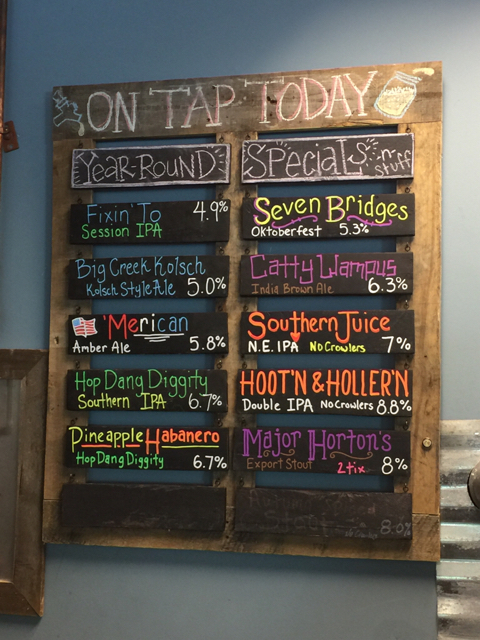 ON TAP TODAY
YEAR-ROUND
Fixin' To 4.9%
Session IPA
Big Creek Kolsch
Kolsch Style Ale 5.0%
'Merican
Amber Ale 5.8%
Hop Dang Diggity
Southern IPA 6.7%
Pineapple Habanero
Hop Dang Diggity 6.7%
SPECIALS 'n
stuff
Seven Bridges
Oktoberfest 5.3%
Catty Wampus
India Brown Ale 6.3%
Southern Juice
N.E. IPA No Crowlers 7%
HOOT'N & HOLLER'N
Double IPA No Crowlers 8.8%
Major Horton's
Export Stout 2tix 8%
Stout
8.0%